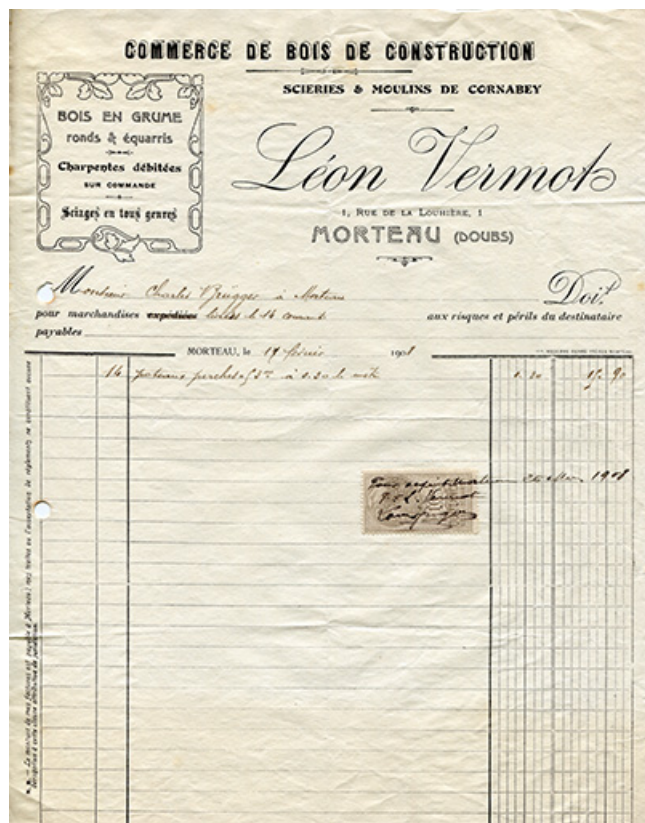 COMMERCE DE BOIS DE CONSTRUCTION
SCIERIES & MOULINS DE CORNABEY
BOIS EN GRUME
ronds & équarris
Charpentes débitées
SUR COMMANDE
Sciages en tous genres
Léon Vermot
1, RUE DE LA LOUHIÈRE, 1
MORTEAU (DOUBS)
Monsieur Charles Brügger à Morteau
Doit
pour marchandises expédiées livrées le 14 courant
aux risques et périls du destinataire
payables
MORTEAU, le 19 février 1908
14 poteaux perches à 0.30 le mètre
Pour acquit Morteau 1908
L. Vermot